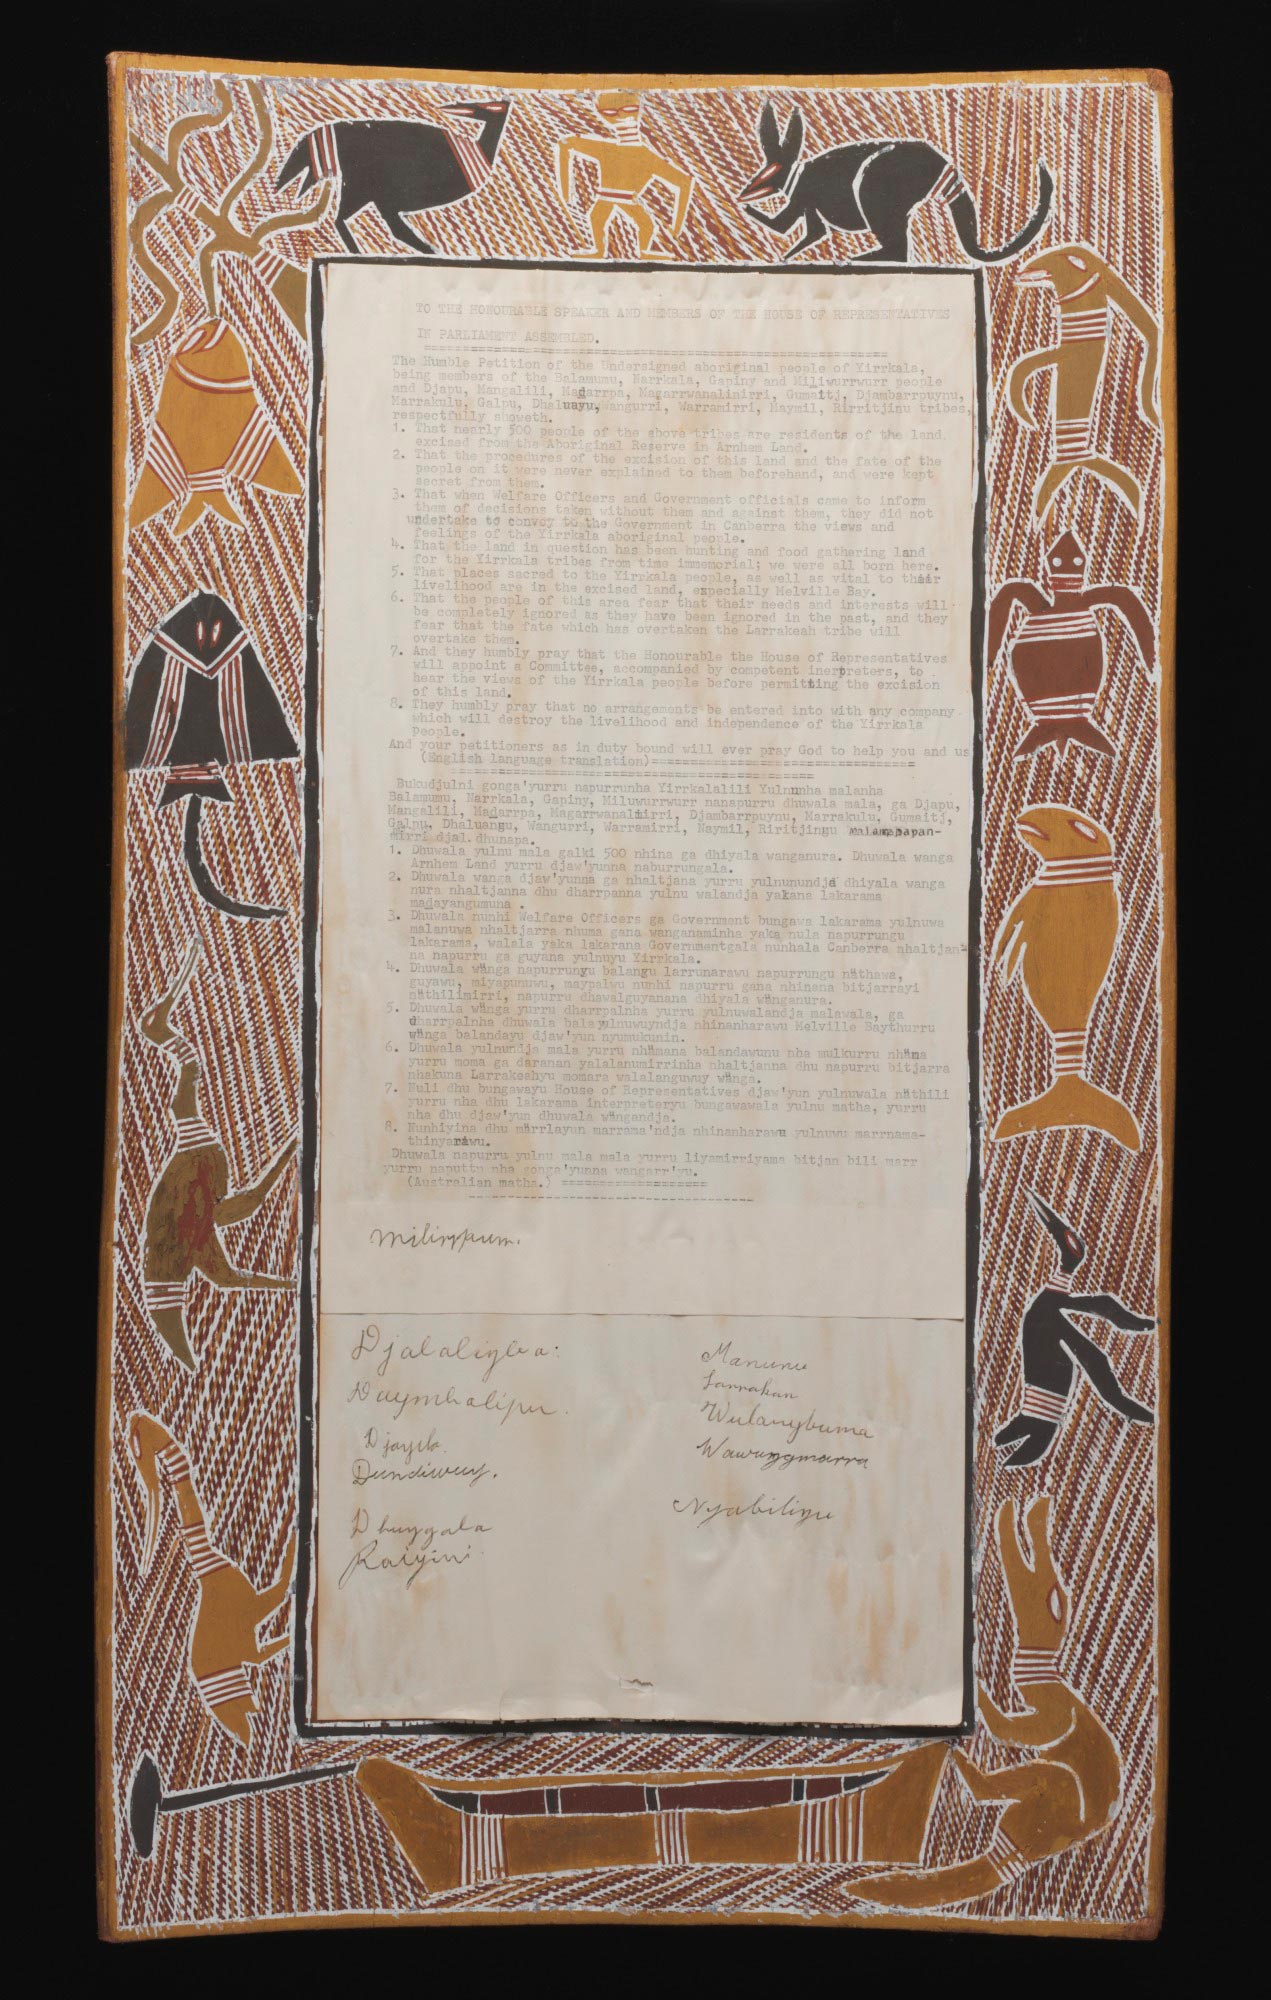 TO THE HONOURABLE SPEAKER AND MEMBERS OF THE HOUSE OF REPRESENTATIVES
IN PARLIAMENT ASSEMBLED.
The Humble Petition of the Undersigned aboriginal people of Yirrkala,
being members of the Balamumu, Narrkala, Gapiny and Miliwurrwurr people
and Djapu, Mangalili, Madarrpa, Magarrwanalinirri, Gumaitj, Djambarrpuynu,
Marrakulu, Galpu, Dhaluayu, Wangurri, Warramirri, Maymil, Rirritjinu tribes,
respectfully showeth.
1. That nearly 500 people of the above tribes are residents of the land
excised from the Aboriginal Reserve in Arnhem Land.
2. That the procedures of the excision of this land and the fate of the
people on it were never explained to them beforehand, and were kept
secret from them.
3. That when Welfare Officers and Government officials came to inform
them of decisions taken without them and against them, they did not
undertake to convey to the Government in Canberra the views and
feelings of the Yirrkala aboriginal people.
4. That the land in question has been hunting and food gathering land
for the Yirrkala tribes from time immemorial; we were all born here.
5. That places sacred to the Yirrkala people, as well as vital to their
livelihood are in the excised land, especially Melville Bay.
6. That the people of this area fear that their needs and interests will
be completely ignored as they have been ignored in the past, and they
fear that the fate which has overtaken the Larrakeah tribe will
overtake them.
7. And they humbly pray that the Honourable the House of Representatives
will appoint a Committee, accompanied by competent inerpreters, to
hear the views of the Yirrkala people before permitting the excision
of this land.
8. They humbly pray that no arrangements be entered into with any company
which will destroy the livelihood and independence of the Yirrkala
people.
And your petitioners as in duty bound will ever pray God to help you and us
(English language translation)
Bukudjulni gonga'yurru napurrunha Yirrkalalili Yulnunha malanha
Balamumu, Narrkala, Gapiny, Miluwurrwurr nanapurru dhuwala mala, ga Djapu,
Mangalili, Madarrpa, Magarrwanalmirri, Djambarrpuynu, Marrakulu, Gumaitj,
Galpu, Dhaluangu, Wangurri, Warramirri, Naymil, Riritjingu malamapapan-
mirri djal dhunapa.
1. Dhuwala yulnu mala galki 500 nhina ga dhiyala wanganura. Dhuwala wanga
Arnhem Land yurru djaw'yunna naburrungala.
2. Dhuwala wanga djaw'yunna ga nhaltjana yurru yulnunundja dhiyala wanga
nura nhaltjanna dhu dharrpanna yulnu walandja yakana lakarama
madayangumuna .
3. Dhuwala nunhi Welfare Officers ga Government bungawa lakarama yulnuwa
malanuwa nhaltjarra nhuma gana wanganaminha yaka nula napurrungu
lakarama, walala yaka lakarana Governmentgala nunhala Canberra nhaltjan-
na napurru ga guyana yulnuyu Yirrkala.
4. Dhuwala wänga napurrungu balangu larrunarawu napurrungu näthawa,
guyawu, miyapunuwu, maypalwu nunhi napurru gana nhinana bitjarrayi
näthilimirri, napurru dhawalguyanana dhiyala wänganura.
5. Dhuwala wänga yurru dharrpalnha yurru yulnuwalandja malawala, ga
dharrpalnha dhuwala bala yulnuwuyndja nhinanharawu Melville Baythurru
wänga balandayu djaw'yun nyumukunin.
6. Dhuwala yulnundja mala yurru nhämana balandawunu nha mulkurru nhäna
yurru moma ga daranan yalalanumirrinha nhaltjanna dhu napurru bitjarra
nhakuna Larrakeahyu momara walalanguwuy wänga.
7. Nuli dhu bungawayu House of Representatives djaw'yun yulnuwala näthili
yurru nha dhu lakarama interpreteryu bungawawala yulnu matha, yurru
nha dhu djaw'yun dhuwala wängandja.
8. Nunhiyina dhu märrlayun marrama'ndja nhinanharawu yulnuwu marrnama-
thinyarawu.
Dhuwala napurru yulnu mala mala yurru liyamirriyama bitjan bili marr
yurru naputtu nha gonga'yunna wangarr'yu.
(Australian matha.)
Milirrpum.
Djalalingba:
Daymbalipu.
Djayila.
Dundiwuy.
Dhuygala
Raiyini
Manunu
Larrakan
Wulanybuma
Wawunymarra
Nyabilingu